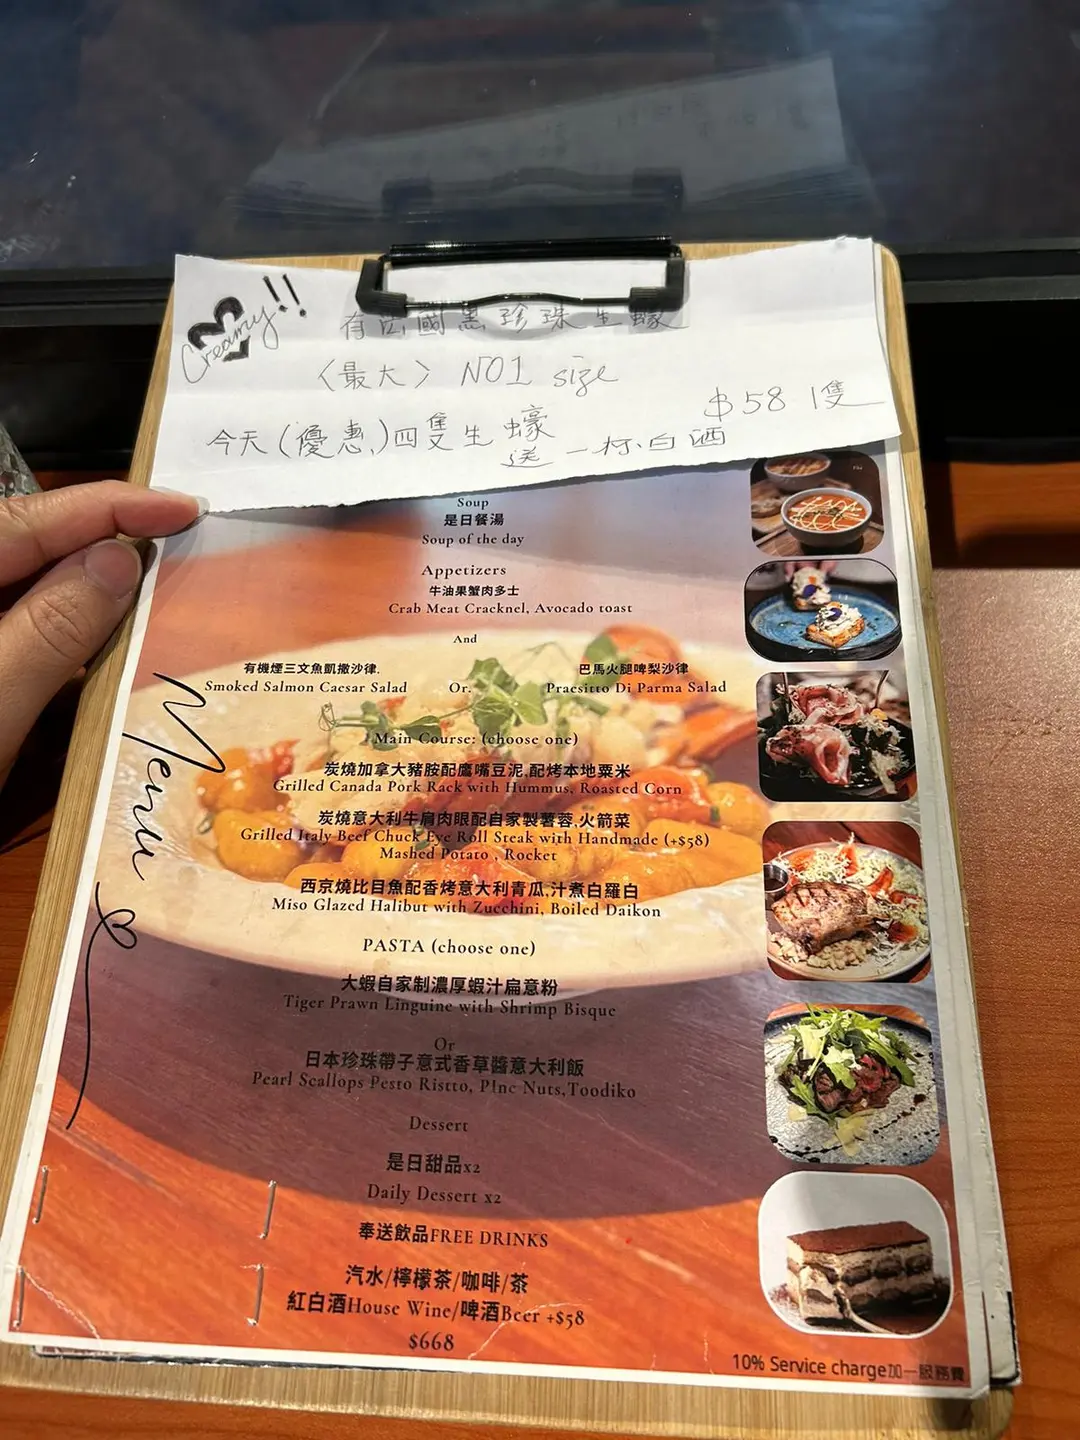 Creamy!!
有法國黑珍珠生蠔
〈最大〉 NO1 size
$58 1隻
今天(優惠)四隻生蠔
送一杯白酒
Menu
Soup
是日餐湯
Soup of the day
Appetizers
牛油果蟹肉多士
Crab Meat Cracknel, Avocado toast
And
有機煙三文魚凱撒沙律.
Smoked Salmon Caesar Salad
Or.
巴馬火腿啤梨沙律
Praesitto Di Parma Salad
Main Course: (choose one)
炭燒加拿大豬胺配鷹嘴豆泥,配烤本地粟米
Grilled Canada Pork Rack with Hummus, Roasted Corn
炭燒意大利牛肩肉眼配自家製薯蓉,火箭菜
Grilled Italy Beef Chuck Eye Roll Steak with Handmade (+$58)
Mashed Potato , Rocket
西京燒比目魚配香烤意大利青瓜,汁煮白羅白
Miso Glazed Halibut with Zucchini, Boiled Daikon
PASTA (choose one)
大蝦自家制濃厚蝦汁扁意粉
Tiger Prawn Linguine with Shrimp Bisque
Or
日本珍珠帶子意式香草醬意大利飯
Pearl Scallops Pesto Ristto, PInc Nuts,Toodiko
Dessert
是日甜品x2
Daily Dessert x2
奉送飲品FREE DRINKS
汽水/檸檬茶/咖啡/茶
紅白酒House Wine/啤酒Beer +$58
$668
10% Service charge加一服務費